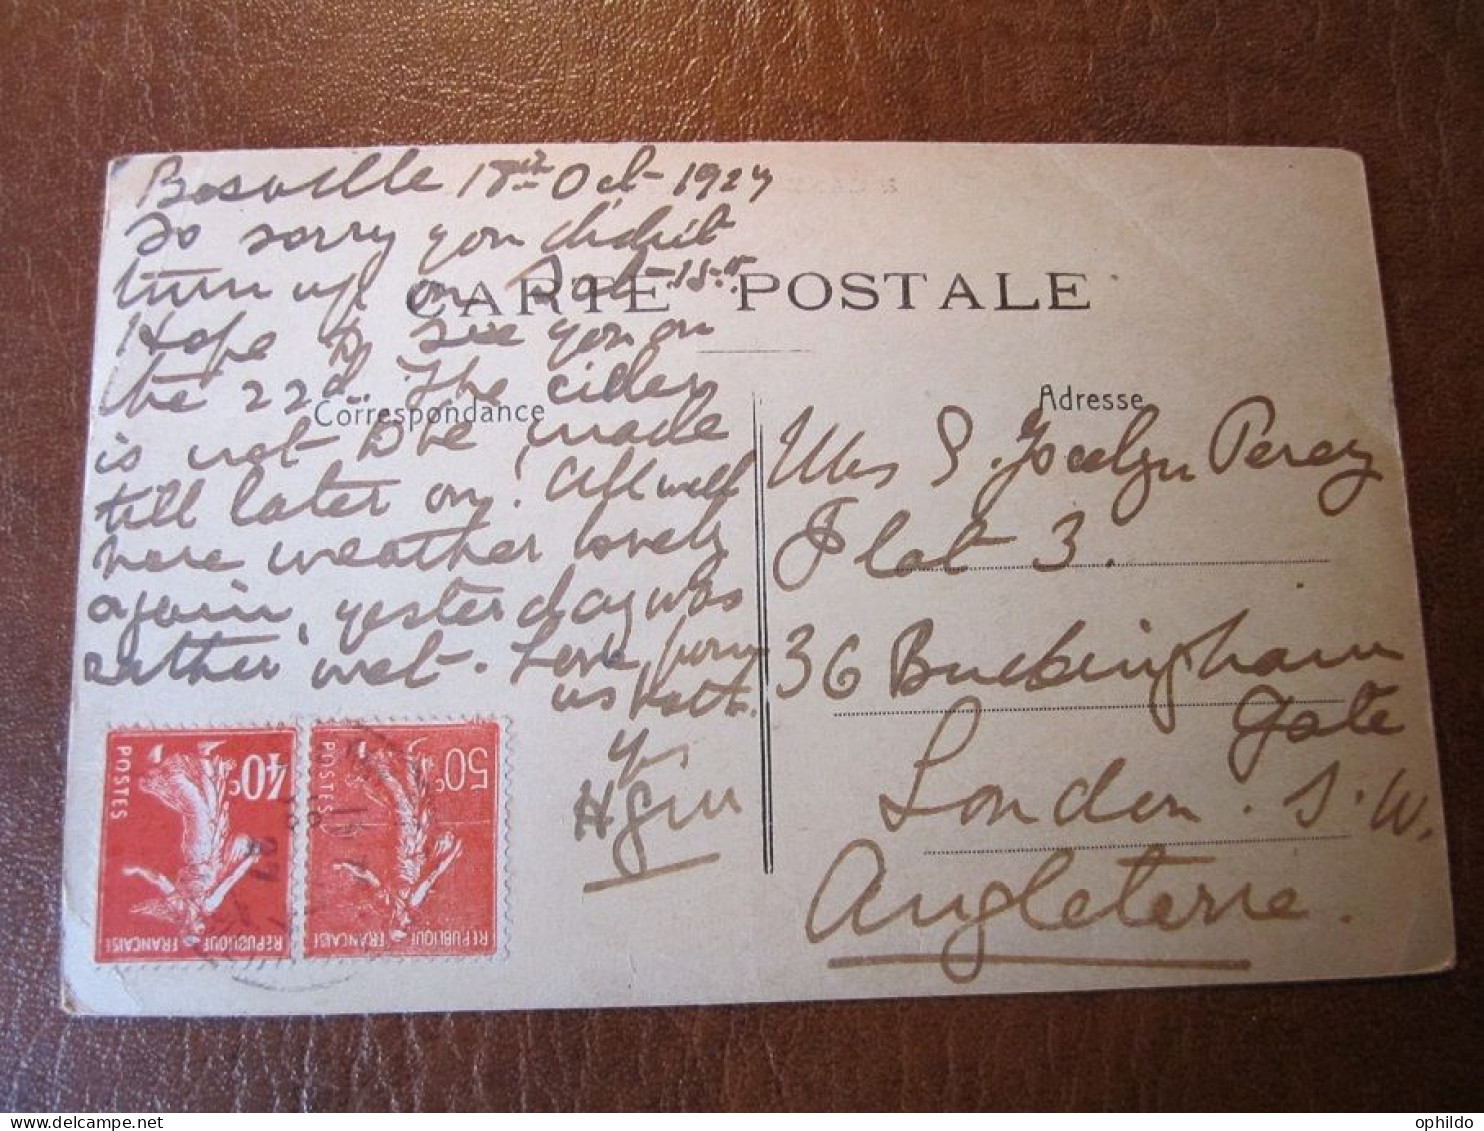 Bosville 18th Oct 1927
So sorry you didn't
turn up on Sat 15th.
Hope to see you on
the 22d. The cider
is not to be made
till later on! All well
here weather lovely
again, yesterday was
rather wet. Love from
us both.
CARTE POSTALE
Correspondance
Adresse
Mrs S. Jocelyn Percy
Flat 3.
36 Buckingham
Gate
London. S.W.
Angleterre.
40c
POSTES
REPUBLIQUE FRANCAISE
50c
POSTES
REPUBLIQUE FRANCAISE
ophildo
delcampe.net